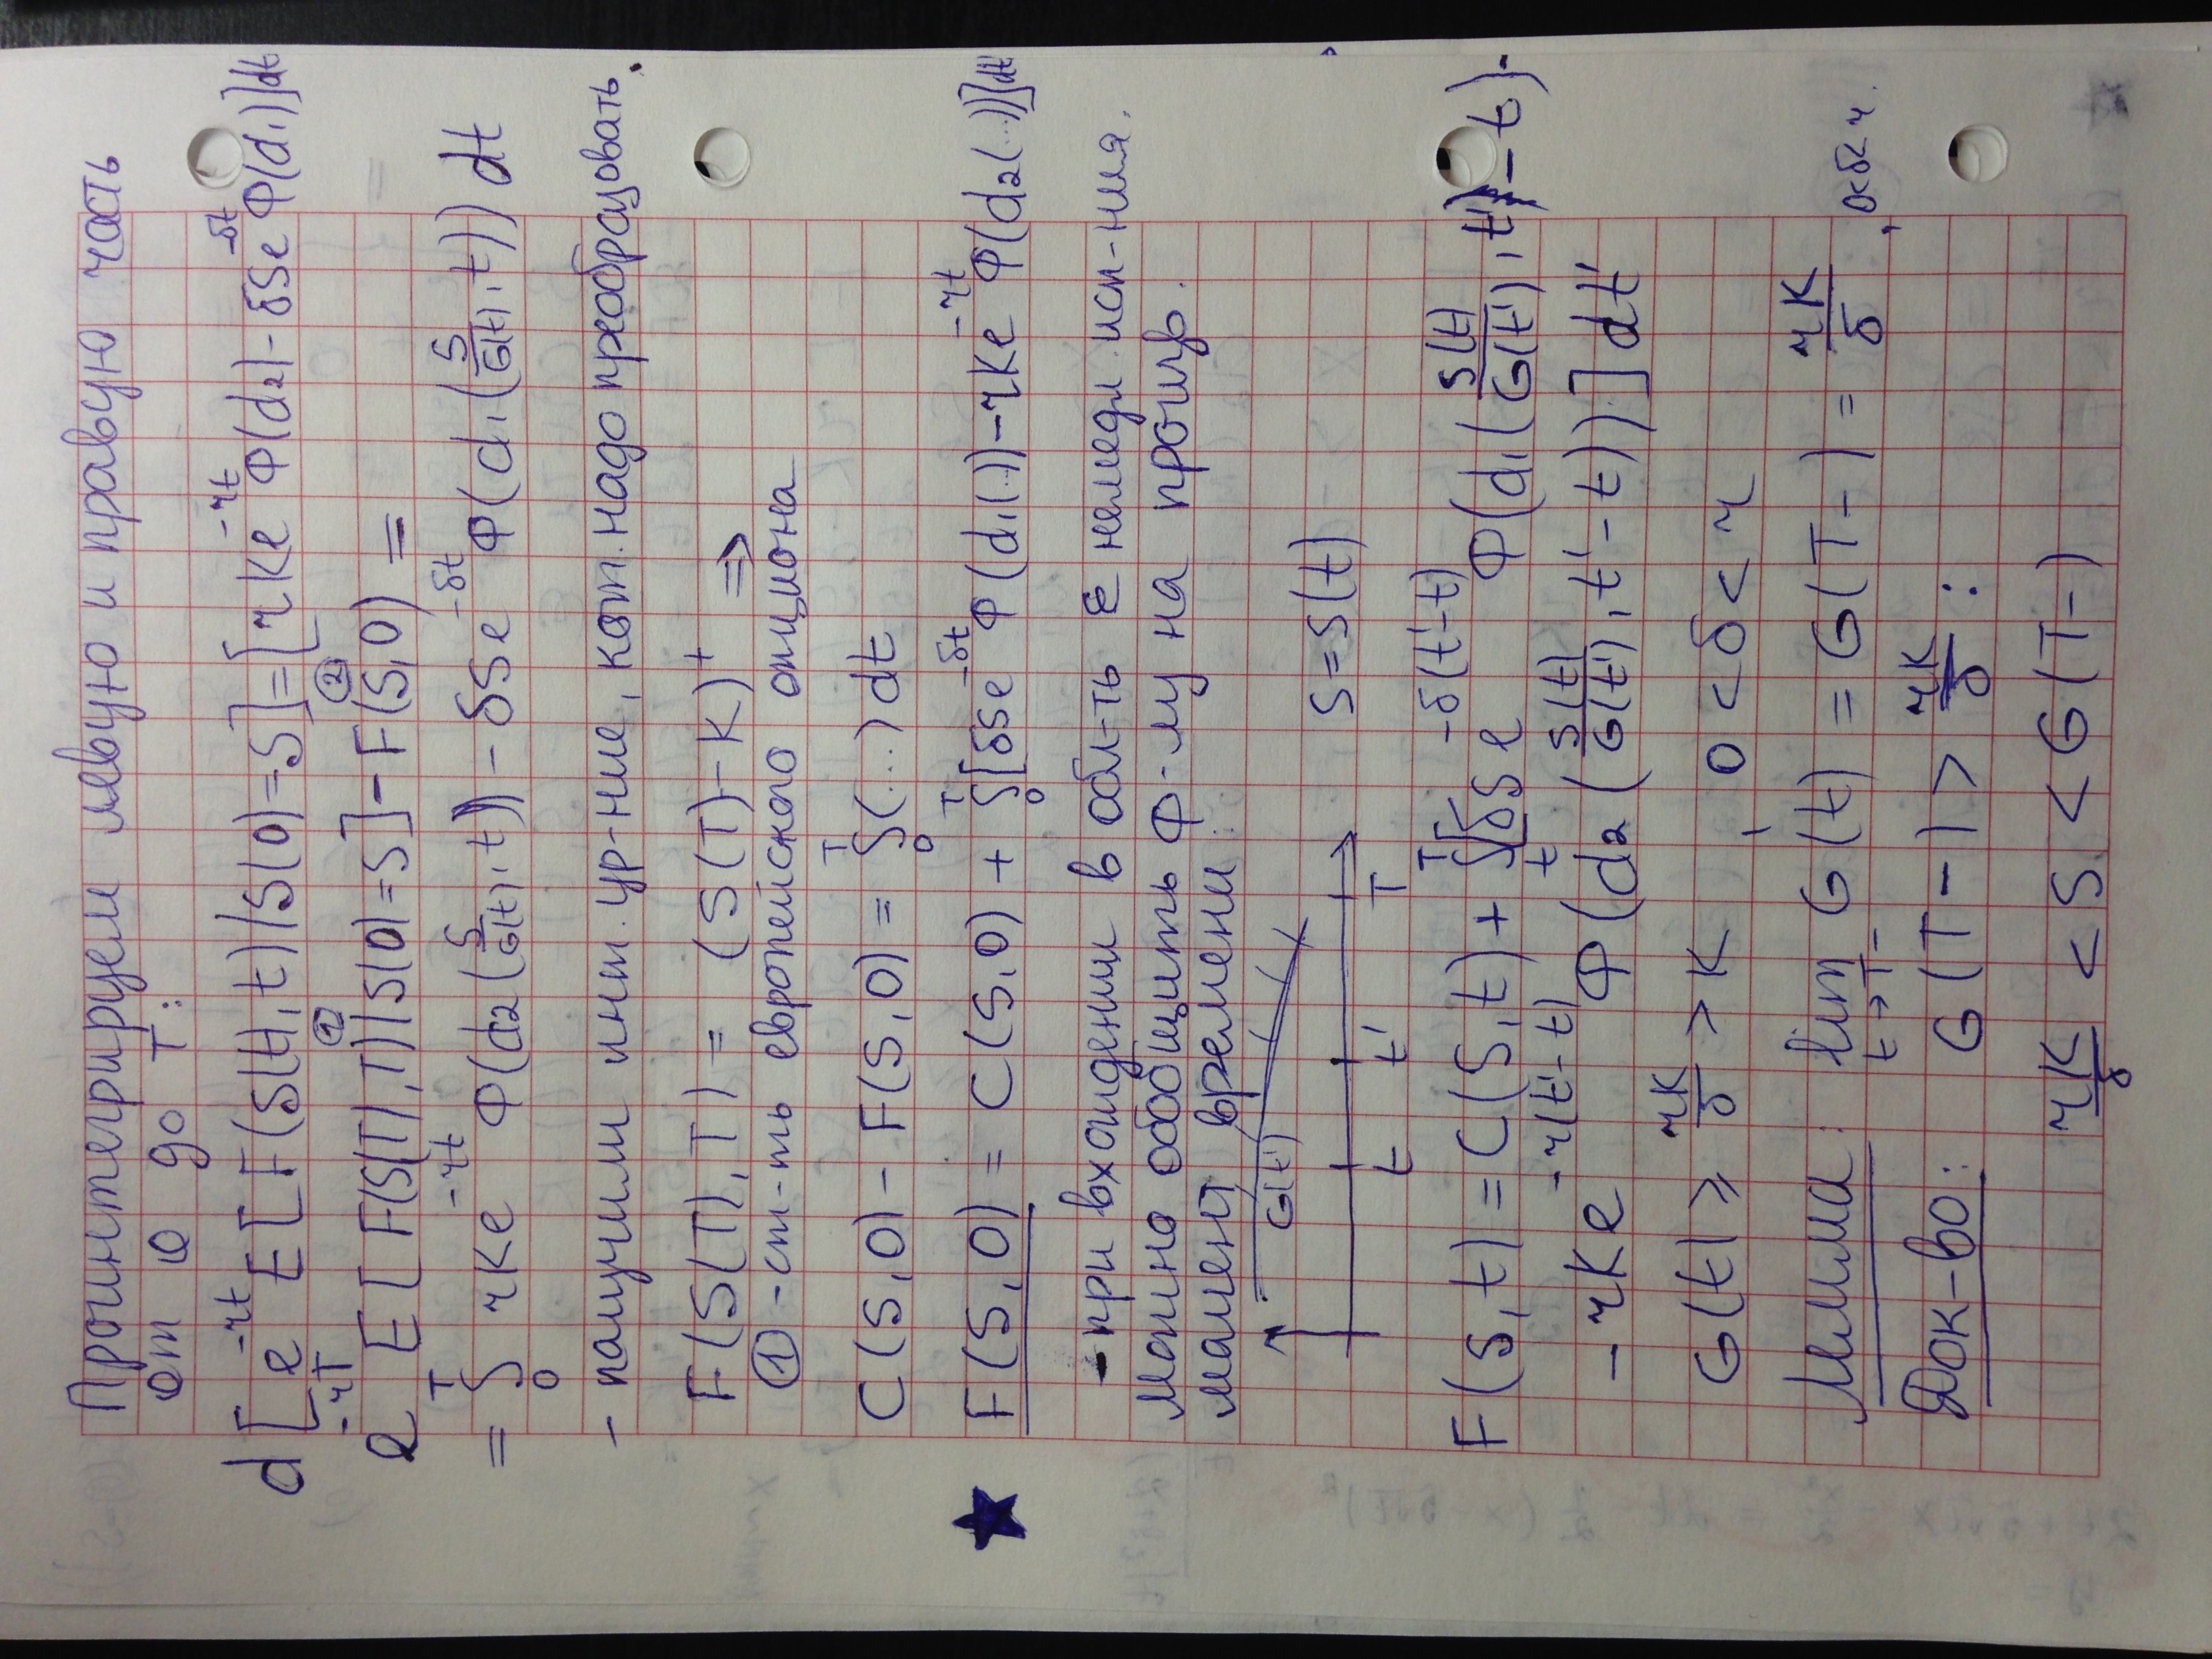 Проинтегрируем левую и правую часть
от 0 до T:
d[e^{-rt} E[F(S(t),t)|S(0)=S]=[rKe^{-rt} Φ(d₂)-δSe^{-δt}Φ(d₁)]dt
e^{-rT} E[F(S(T),T)|S(0)=S]^{①}-F(S,0)^{②} =
= ∫₀ᵀ rKe^{-rt} Φ(d₂(S/G(t),t))-δSe^{-δt} Φ(d₁(S/G(t),t)) dt
- получили инт. ур-ние, кот. надо преобразовать.
F(S(T),T) = (S(T)-K)⁺ ⇒
① -ст-ть европейского опциона
C(S,0)-F(S,0) = ∫₀ᵀ(...)dt
★ F(S,0) = C(S,0) + ∫₀ᵀ[δSe^{-δt} Φ(d₁(..))-rKe^{-rt}Φ(d₂(...))]dt
-при вхождении в обл-ть Ɛ немедл. исп-ния.
можно обобщить ф-лу на произв.
момент времени:
G(t') S=S(t)
t t' T
F(S,t)=C(S,t)+∫ₜᵀ[δSe^{-δ(t'-t)} Φ(d₁(S(t)/G(t'),t'-t)-
-rKe^{-r(t'-t)} Φ(d₂(S(t)/G(t'),t'-t))]dt'
G(t) ⩾ rK/δ > K , 0<δ<r
Лемма: lim_{t→T-} G(t) = G(T-) = rK/δ , 0<δ<r.
Док-во: G(T-) > rK/δ :
rK/δ < S < G(T-)